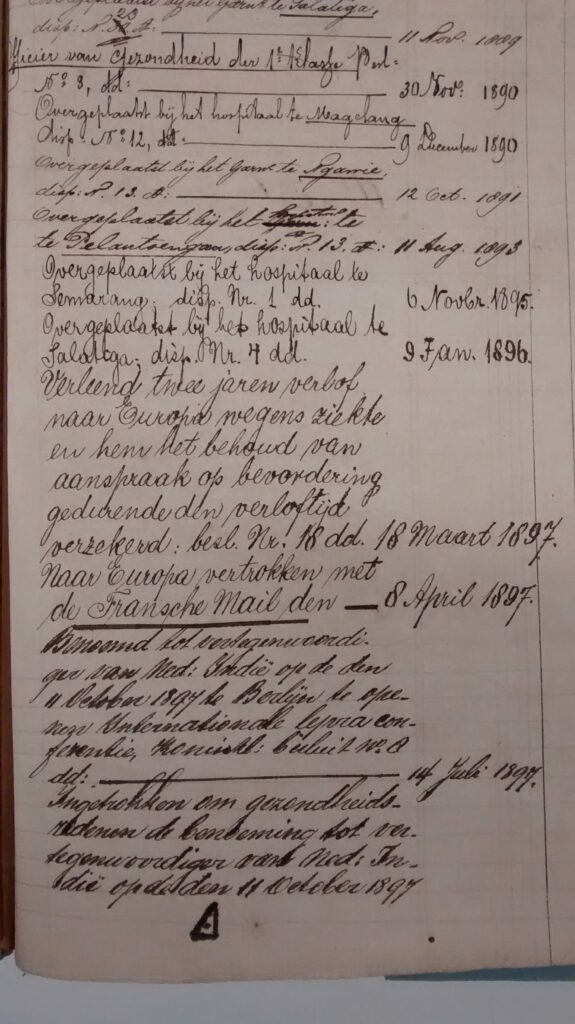 Overgeplaatst bij het Garn: te Salatiga,
disp: N. 23 d: 11 Nov. 1889
Officier van Gezondheid der 1e Klasse Besl:
No 8, dd: 30 Novr. 1890
Overgeplaatst bij het hospitaal te Magelang
disp: No 12, dd: 9 December 1890
Overgeplaatst bij het Garn: te Ngawie,
disp: N. 13. d: 12 Oct. 1891
Overgeplaatst bij het hospitaal te
te Pelantoengan, disp: N. 13. d: 11 Aug. 1893
Overgeplaatst bij het hospitaal te
Semarang; disp. Nr. 1 dd. 6 Novbr. 1895.
Overgeplaatst bij het hospitaal te
Salatiga; disp. Nr. 4 dd. 9 Jan. 1896.
Verleend twee jaren verlof
naar Europa wegens ziekte
en hem het behoud van
aanspraak op bevordering
gedurende den verloftijd
verzekerd: besl. Nr. 18 dd. 18 Maart 1897.
Naar Europa vertrokken met
de Fransche Mail den 8 April 1897.
Benoemd tot vertegenwoordi-
ger van Ned: Indië op de den
11 October 1897 te Berlijn te ope-
nen Internationale lepra con-
ferentie, Koninkl: besluit no. 8
dd: 14 Juli 1897.
Ingetrokken om gezondheids-
redenen de benoeming tot ver-
tegenwoordiger van Ned: In-
dië op de den 11 October 1897